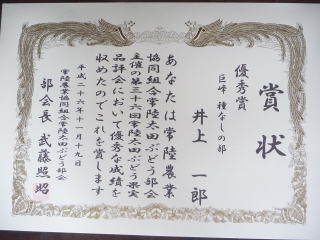 賞状
優秀賞
巨峰 種なしの部
井上 一郎
あなたは常陸農業
協同組合常陸太田ぶどう部会
主催の第三十六回常陸太田ぶどう果実
品評会において優秀な成績を
収めたのでこれを賞します
平成二十六年十一月十九日
常陸農業協同組合常陸太田ぶどう部会
部会長 武藤照昭